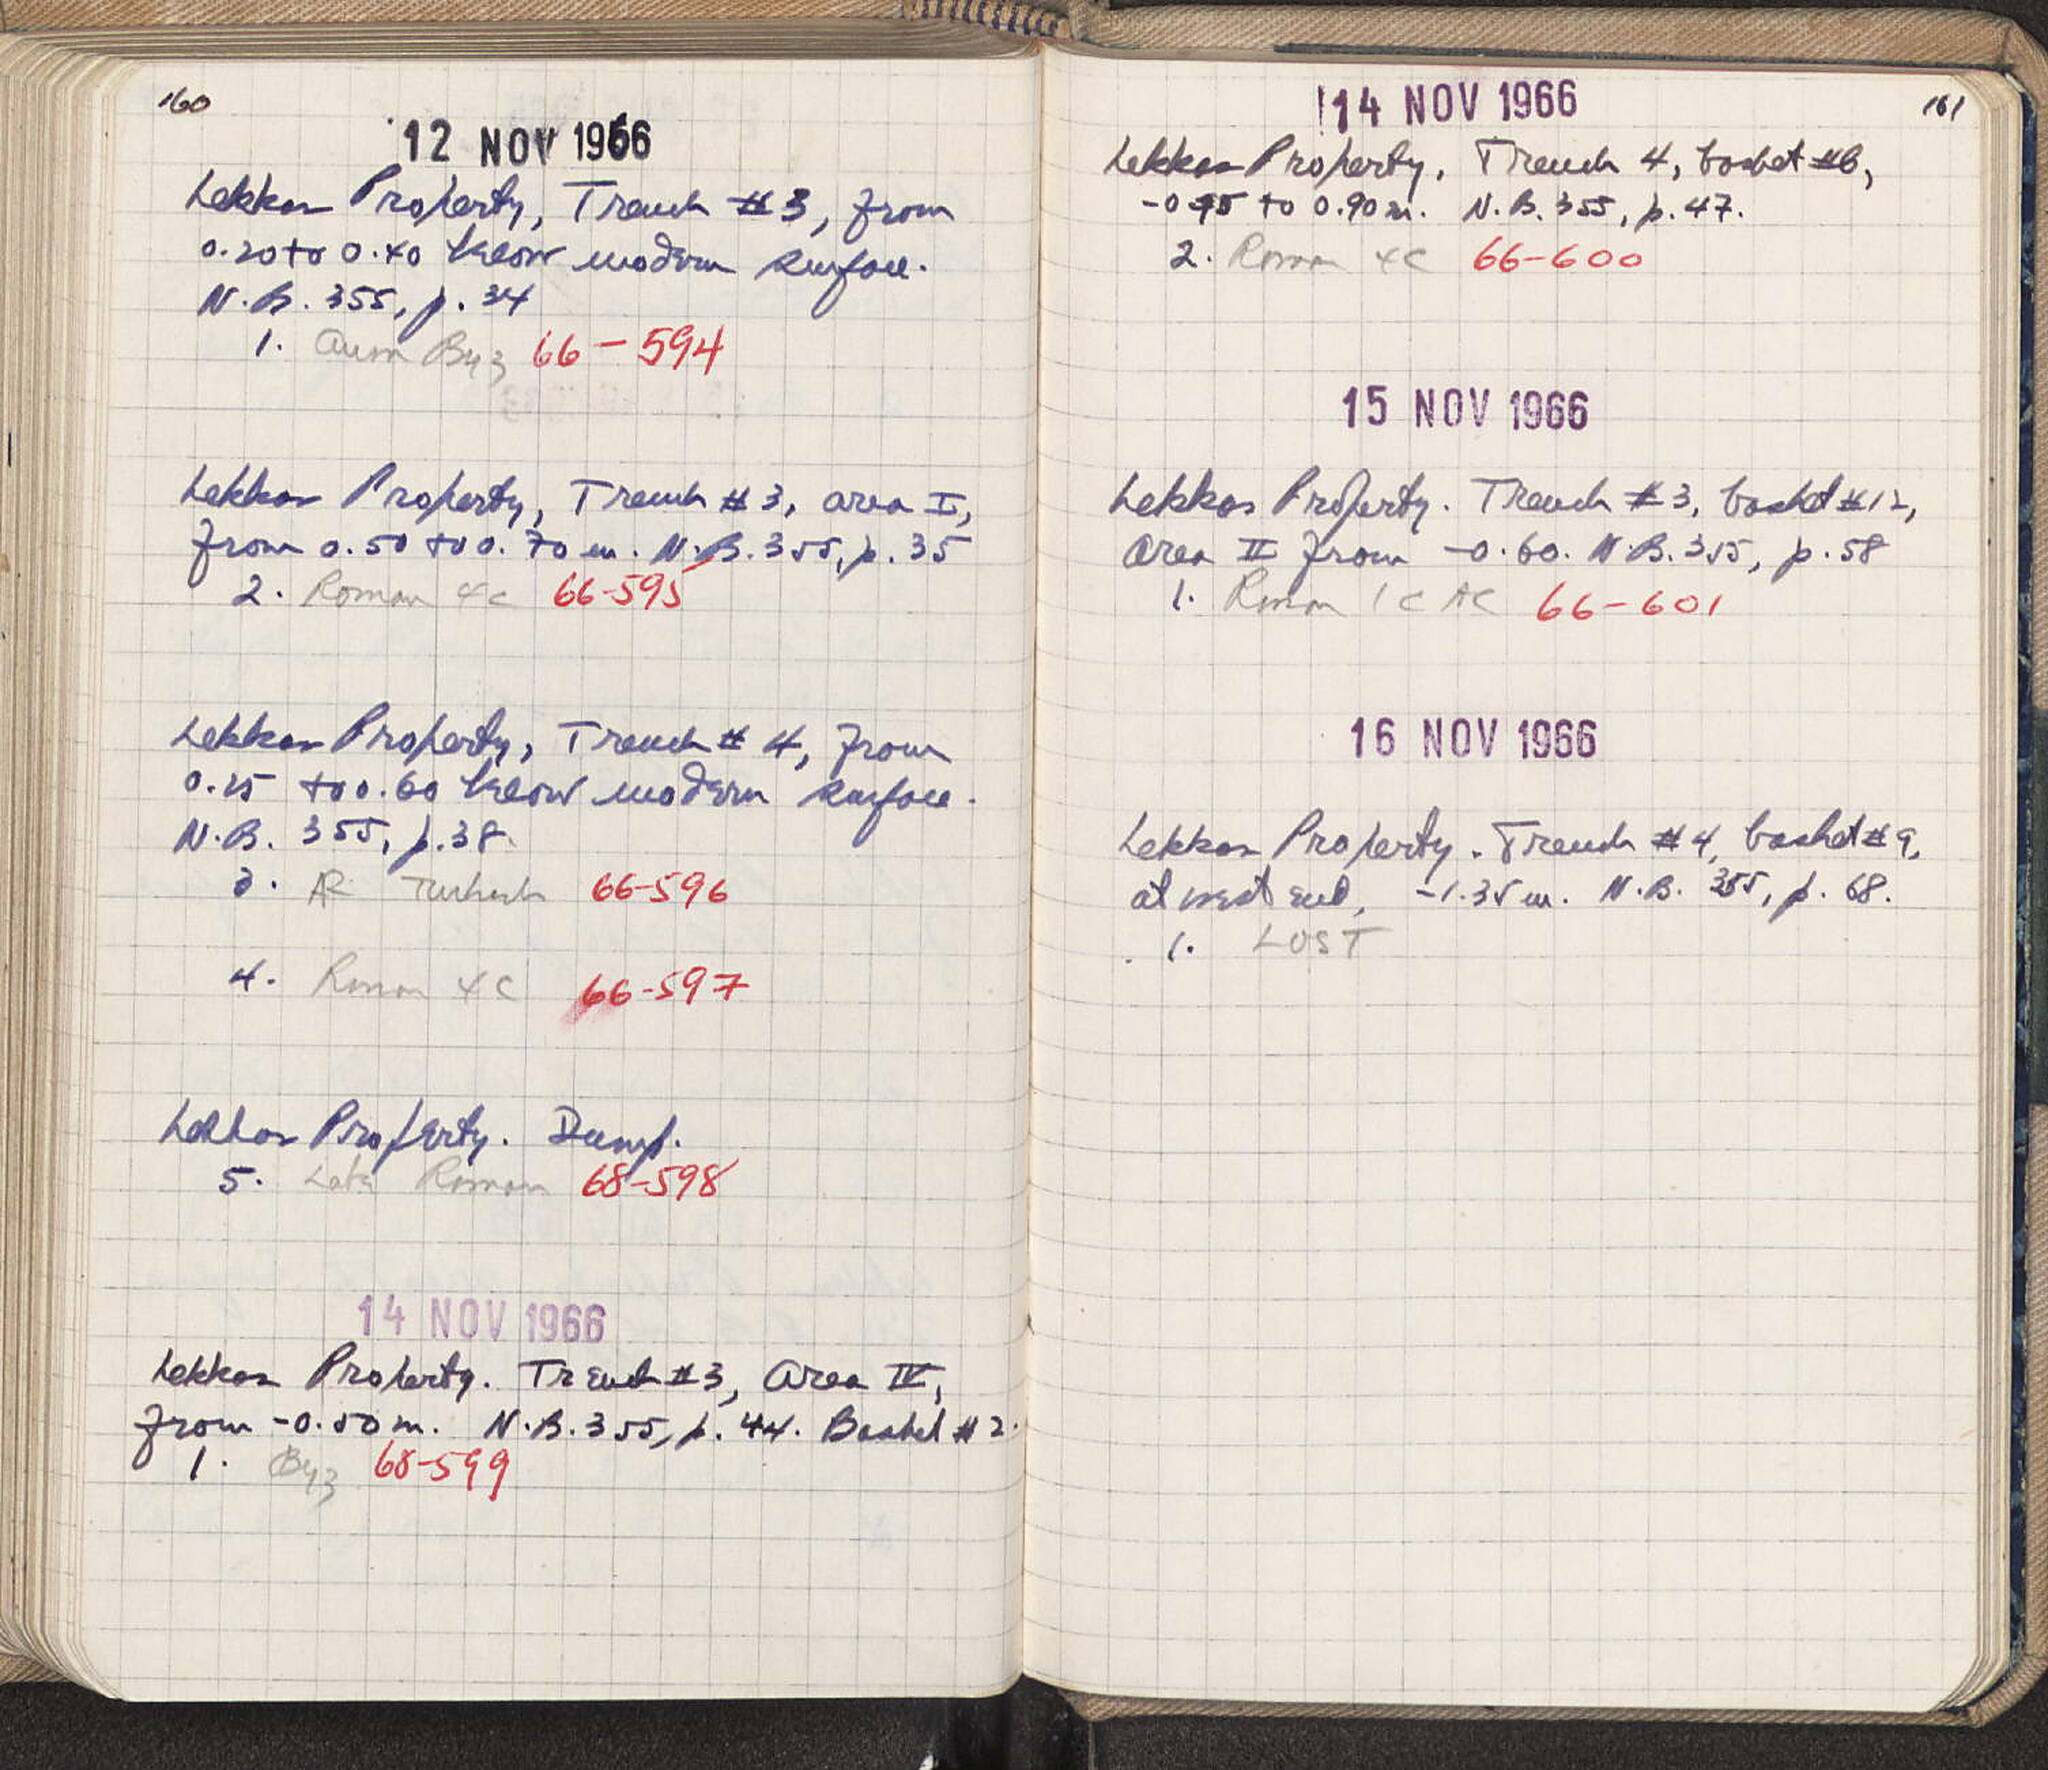 160
12 NOV 1966
Lekkas Property, Trench #3, from
0.20 to 0.40 below modern surface.
N.B. 355, p. 34
1. Anon Byz 66-594
Lekkas Property, Trench #3, area I,
from 0.50 to 0.70 m. N.B. 355, p. 35
2. Roman 4c 66-595
Lekkas Property, Trench # 4, from
0.25 to 0.60 below modern surface.
N.B. 355, p. 38.
3. AR Turkish 66-596
4. Roman 4C 66-597
Lekkas Property. Dump.
5. Late Roman 68-598
14 NOV 1966
Lekkas Property. Trench #3, Area IV,
from -0.50 m. N.B. 355, p. 44. Basket #2.
1. Byz 68-599
161
14 NOV 1966
Lekkas Property. Trench 4, basket #6,
to 0.90 m. N.B. 355, p. 47.
2. Roman 4C 66-600
15 NOV 1966
Lekkas Property. Trench #3, basket #12,
area II from -0.60. N.B. 355, p. 58
1. Roman 1C AC 66-601
16 NOV 1966
Lekkas Property. Trench #4, basket #9,
at west end, -1.35 m. N.B. 355, p. 68.
1. LOST